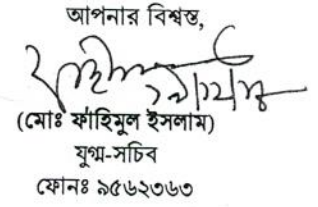 আপনার বিশ্বস্ত,
(মোঃ ফাহিমুল ইসলাম)
যুগ্ম-সচিব
ফোনঃ ৯৫৬২৩৬৩